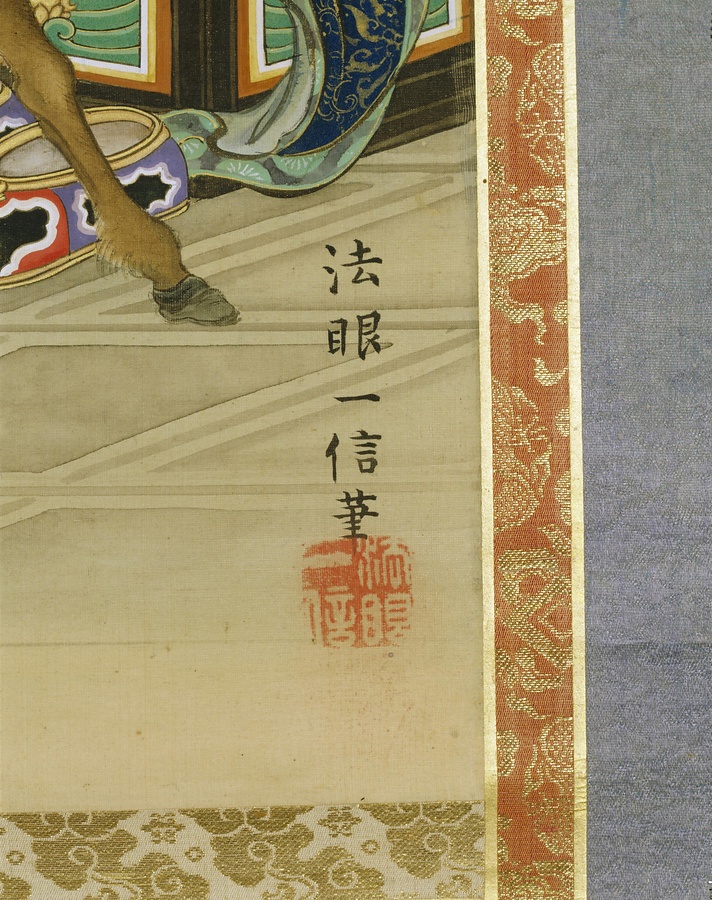 法眼一信筆
法眼
一信